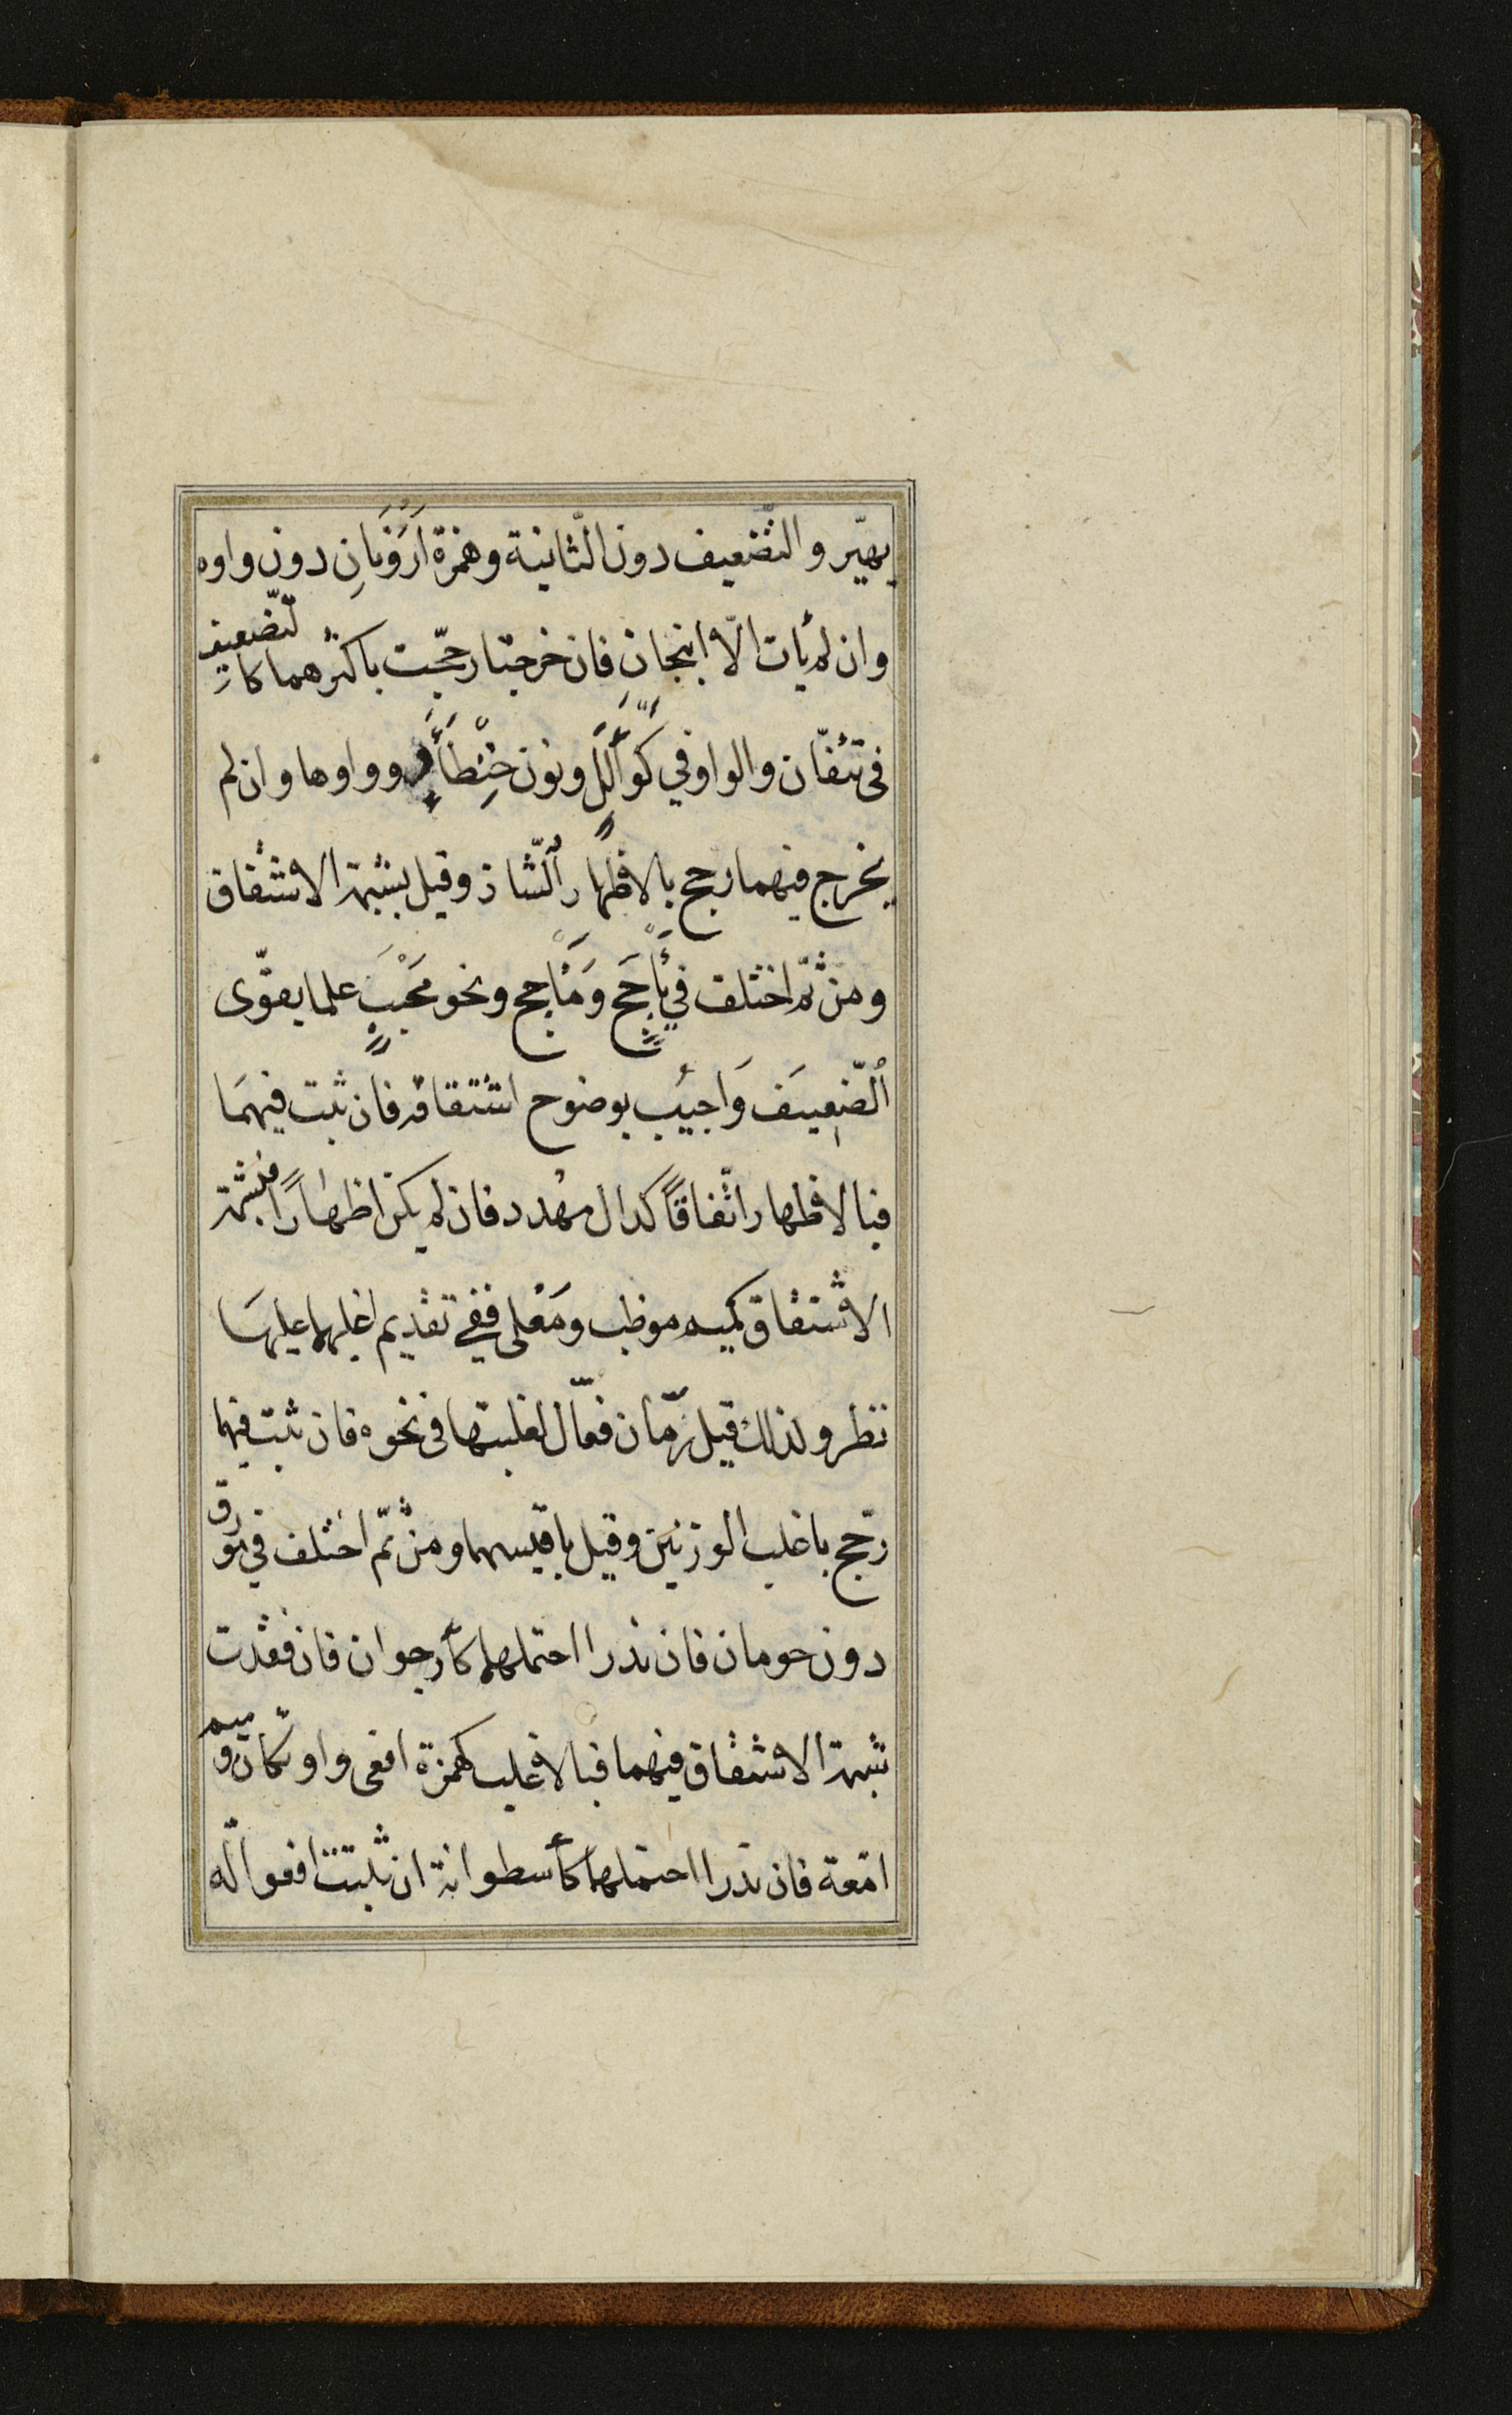 يهيّر والتّضعيف دون الثّانية وهمزة اَرْوَنَانِ دون واوه
وان لم يأت الّا انبجانِ فان خرجتا رجّحت باكثرهما كالتّضعيف
فى تئفّان والواو في كَوَأْلَلٍ ونون حِنْطَأْوٍ وواوها وان لم
يخرج فيهما رجح بالاظهار الشّاذ وقيل بشبهة الاشتقاق
ومن ثمّ اختلف في يَأْجَجَ ومَأْجج ونحو مَحْبَبٍ علما يقوّى
الضّعيف وَاجيب بوضوح اشتقاقه فان ثبت فيهمَا
فبالاظهار اتّفاقًا كدال مهدد فان لم يكن اظهارًا فبشبهة
الاشتقاق كميم موظب ومَعْلى ففي تقديم اغلبهما عليهَا
نظر ولذلك قيل رمّان فعّال لغلبتها فى نحوه فان ثبت فيهما
رجّح باغلب الوزنين وقيل باقيسهما ومن ثمّ اختلف في مورق
دون حومان فان ندرا احتملهما كأرجوان فان فقدت
شبهة الاشتقاق فيهما فبالاغلب كهمزة افعى واوتكان وميم
امّعة فان ندرا احتملهما كأسطوانة ان ثبتت افعوالة